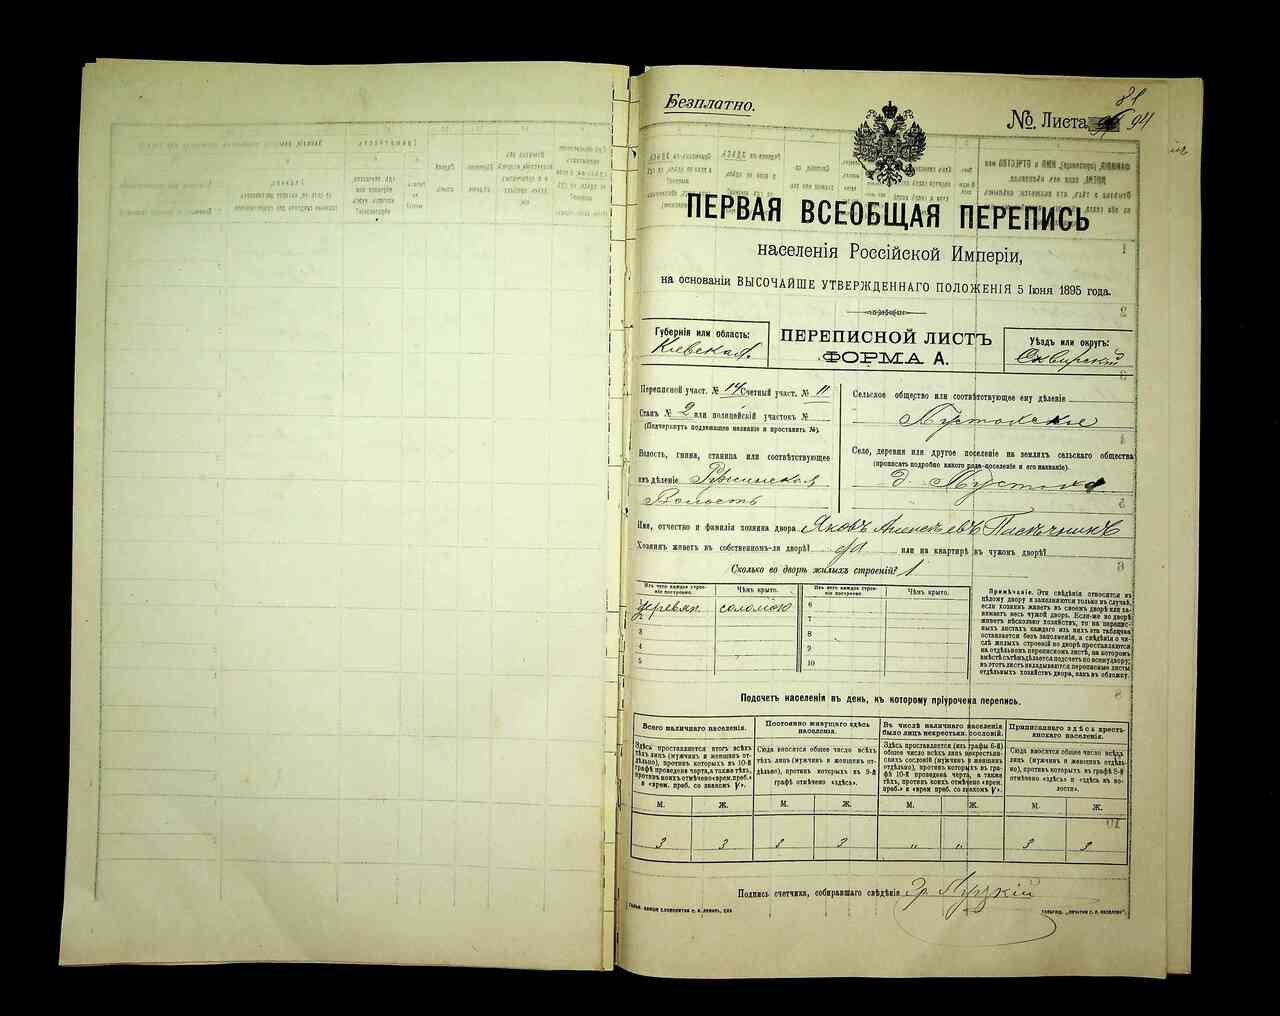 Безплатно.
81
№ Листа 94
ПЕРВАЯ ВСЕОБЩАЯ ПЕРЕПИСЬ
населенія Россійской Имперіи,
на основаніи ВЫСОЧАЙШЕ УТВЕРЖДЕННАГО ПОЛОЖЕНІЯ 5 Іюня 1895 года.
Губернія или область:
Кіевская
ПЕРЕПИСНОЙ ЛИСТЪ
ФОРМА А.
Уѣздъ или округъ:
Сквирскій
Переписной участ. № 14 Счетный участ. № 11
Станъ № 2 или полицейскій участокъ №
(Подчеркнуть подлежащее названіе и проставить №).
Волость, гмина, станица или соотвѣтствующее
имъ дѣленіе Ружинская
Волость
Сельское общество или соотвѣтствующее ему дѣленіе
Село, деревня или другое поселеніе на земляхъ сельскаго общества
(прописать подробно какого рода поселеніе и его названіе).
д
Имя, отчество и фамилія хозяина двора Яковъ Алексѣевъ Пасѣчникъ
Хозяинъ живетъ въ собственномъ-ли дворѣ? да или на квартирѣ въ чужомъ дворѣ?
Сколько во дворѣ жилыхъ строеній? 1
Изъ чего каждое строеніе построено.
Чѣмъ крыто.
Изъ чего каждое строеніе построено.
Чѣмъ крыто.
1 деревян. соломою
2
3
4
5
6
7
8
9
10
Примѣчаніе. Эти свѣдѣнія относятся къ
цѣлому двору и заполняются только въ случаѣ,
если хозяинъ живетъ въ своемъ дворѣ или занимаетъ
весь чужой дворъ. Если-же во дворѣ
живетъ нѣсколько хозяйствъ, то на переписныхъ
листахъ каждаго изъ нихъ эта табличка
оставляется безъ заполненія, а свѣдѣнія о числѣ
жилыхъ строеній во дворѣ проставляются
на отдѣльномъ переписномъ листѣ, на которомъ
вмѣстѣ съ тѣмъ дѣлается подсчетъ по всему двору;
въ этотъ листъ вкладываются переписные листы
отдѣльныхъ хозяйствъ двора, какъ въ обложку.
Подсчетъ населенія въ день, къ которому пріурочена перепись.
Всего наличнаго населенія.
Здѣсь проставляется итогъ всѣхъ
лицъ (мужчинъ и женщинъ отдѣльно),
противъ которыхъ въ 10-й
графѣ проведена черта, а также тѣхъ,
противъ коихъ отмѣчено «врем. преб.»
и «врем. преб. со знакомъ V».
Постоянно живущаго здѣсь
населенія.
Сюда вносится общее число всѣхъ
тѣхъ лицъ (мужчинъ и женщинъ отдѣльно),
противъ которыхъ въ 9-й
графѣ отмѣчено «здѣсь».
Въ числѣ наличнаго населенія
было лицъ некрестьян. сословій.
Здѣсь проставляется (изъ графы 6-й)
общее число всѣхъ лицъ некрестьянскихъ
сословій (мужчинъ и женщинъ
отдѣльно), противъ которыхъ въ графѣ
10-й проведена черта, а также
тѣхъ, противъ коихъ отмѣчено «врем.
преб.» и «врем преб. со знакомъ V».
Приписаннаго здѣсь крестьянскаго
населенія.
Сюда вносится общее число всѣхъ
лицъ (мужчинъ и женщинъ отдѣльно),
противъ которыхъ въ графѣ 8-й
отмѣчено «здѣсь» и «здѣсь въ волости».
М. Ж. М. Ж. М. Ж. М. Ж.
3 3 3 3 " " 3 3
Подпись счетчика, собиравшаго свѣдѣнія